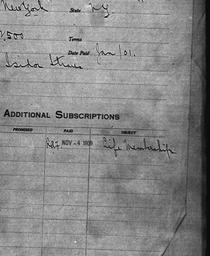 New York State N.Y.
2,500 Terms
Date Paid Jan 1 01.
Isidor Straus
ADDITIONAL SUBSCRIPTIONS
PROMISED PAID OBJECT
NOV -4 1909 Life Membership